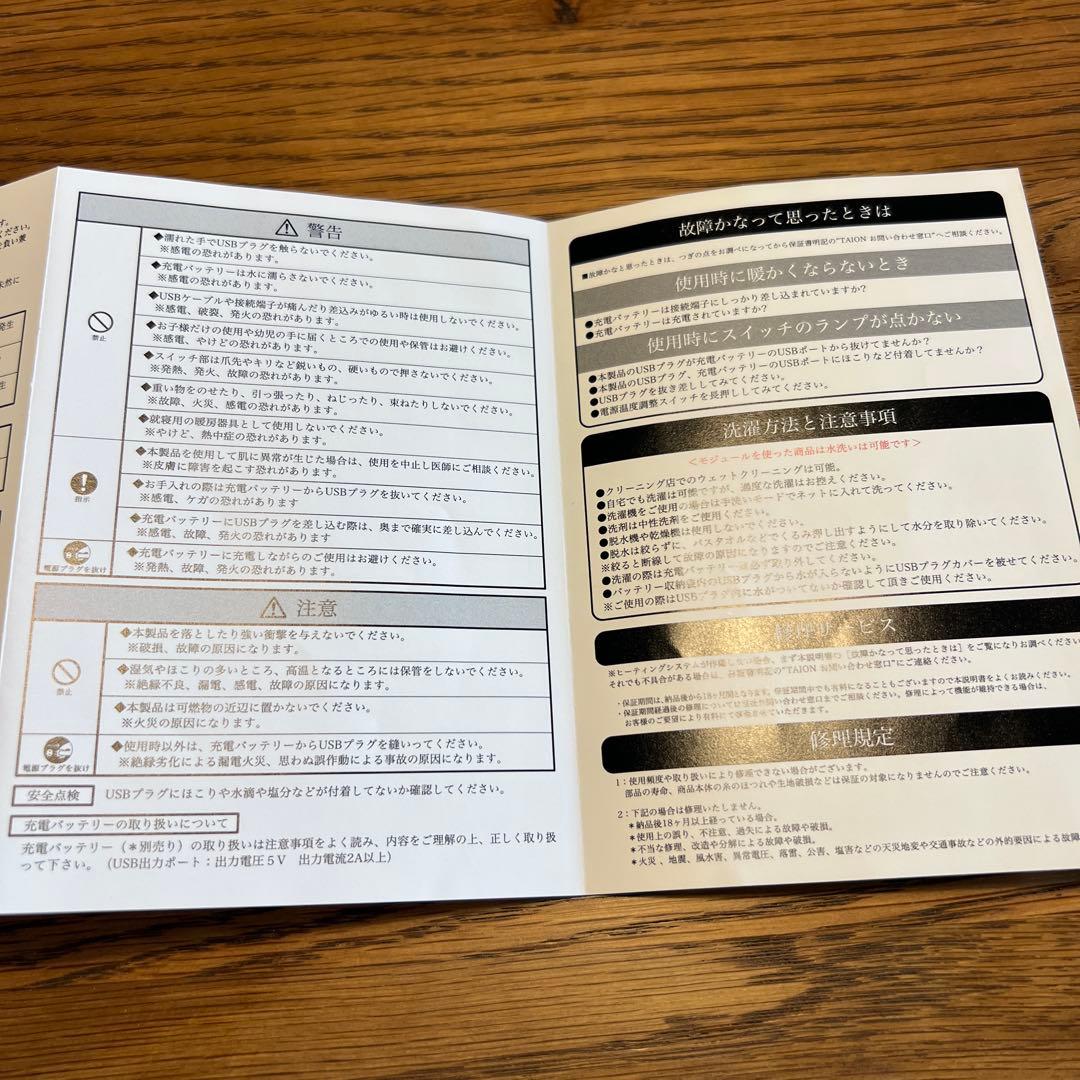 す。
ください。
を負い兼
未然に
発生
生
警告
◆濡れた手でUSBプラグを触らないでください。
※感電の恐れがあります。
◆充電バッテリーは水に濡らさないでください。
※感電の恐れがあります。
◆USBケーブルや接続端子が痛んだり差込みがゆるい時は使用しないでください。
※感電、破裂、発火の恐れがあります。
◆お子様だけの使用や幼児の手に届くところでの使用や保管はお避けください。
※感電、やけどの恐れがあります。
◆スイッチ部は爪先やキリなど鋭いもの、硬いもので押さないでください。
※発熱、発火、故障の恐れがあります。
◆重い物をのせたり、引っ張ったり、ねじったり、束ねたりしないでください。
※故障、火災、感電の恐れがあります。
◆就寝用の暖房器具として使用しないでください。
※やけど、熱中症の恐れがあります。
禁止
◆本製品を使用して肌に異常が生じた場合は、使用を中止し医師にご相談ください。
※皮膚に障害を起こす恐れがあります。
◆お手入れの際は充電バッテリーからUSBプラグを抜いてください。
※感電、ケガの恐れがあります
◆充電バッテリーにUSBプラグを差し込む際は、奥まで確実に差し込んでください。
※感電、故障、発火の恐れがあります
指示
◆充電バッテリーに充電しながらのご使用はお避けください。
※発熱、故障、発火の恐れがあります。
電源プラグを抜け
注意
◆本製品を落としたり強い衝撃を与えないでください。
※破損、故障の原因になります。
◆湿気やほこりの多いところ、高温となるところには保管をしないでください。
※絶縁不良、漏電、感電、故障の原因になります。
◆本製品は可燃物の近辺に置かないでください。
※火災の原因になります。
禁止
◆使用時以外は、充電バッテリーからUSBプラグを縫いってください。
※絶縁劣化による漏電火災、思わぬ誤作動による事故の原因になります。
電源プラグを抜け
安全点検 USBプラグにほこりや水滴や塩分などが付着してないか確認してください。
充電バッテリーの取り扱いについて
充電バッテリー(*別売り)の取り扱いは注意事項をよく読み、内容をご理解の上、正しく取り扱
って下さい。(USB出力ポート:出力電圧5V 出力電流2A以上)
故障かなって思ったときは
■故障かなと思ったときは、つぎの点をお調べになってから保証書明記の"TAION お問い合わせ窓口"へご相談ください。
使用時に暖かくならないとき
●充電バッテリーは接続端子にしっかり差し込まれていますか?
●充電バッテリーは充電されていますか?
使用時にスイッチのランプが点かない
●本製品のUSBプラグが充電バッテリーのUSBポートから抜けてませんか?
●本製品のUSBプラグ、充電バッテリーのUSBポートにほこりなど付着してませんか?
●USBプラグを抜き差ししてみてください。
●電源温度調整スイッチを長押ししてみてください。
洗濯方法と注意事項
<モジュールを使った商品は水洗いは可能です>
●クリーニング店でのウェットクリーニングは可能。
●自宅でも洗濯は可能ですが、過度な洗濯はお控えください。
●洗濯機をご使用の場合は手洗いモードでネットに入れて洗ってください。
●洗剤は中性洗剤をご使用ください。
●脱水機や乾燥機は使用しないでください。
●脱水は絞らずに、バスタオルなどでくるみ押し出すようにして水分を取り除いてください。
※絞ると断線して故障の原因になりますのでご注意ください。
●洗濯の際は充電バッテリーは必ず取り外してください。
●バッテリー収納袋内のUSBプラグから水が入らないようにUSBプラグカバーを被せてください。
※ご使用の際はUSBプラグ内に水がついてないか確認して頂きご使用ください。
修理サービス
※ヒーティングシステムが作動しない場合、まず本説明書の[故障かなって思ったときは]をご覧になりお調べください
それでも不具合がある場合は、保証書明記の"TAION お問い合わせ窓口"にご連絡ください。
・保証期間は、納品後から18ヶ月間となります。保証期間中でも有料になることもございますので本説明書をよくお読みください。
・保証期間経過後の修理については お問い合わせ窓口までご相談ください。修理によって機能が維持できる場合は、
お客様のご要望により有料にて修理させていただきます。
修理規定
1:使用頻度や取り扱いにより修理できない場合がございます。
部品の寿命、商品本体の糸のほつれや生地破損などは保証の対象になりませんのでご注意ください。
2:下記の場合は修理いたしません。
*納品後18ヶ月以上経っている場合。
*使用上の誤り、不注意、過失による故障や破損。
*不当な修理、改造や分解による故障や破損。
*火災、地震、風水害、異常電圧、落雷、公害、塩害などの天災地変や交通事故などの外的要因による故障